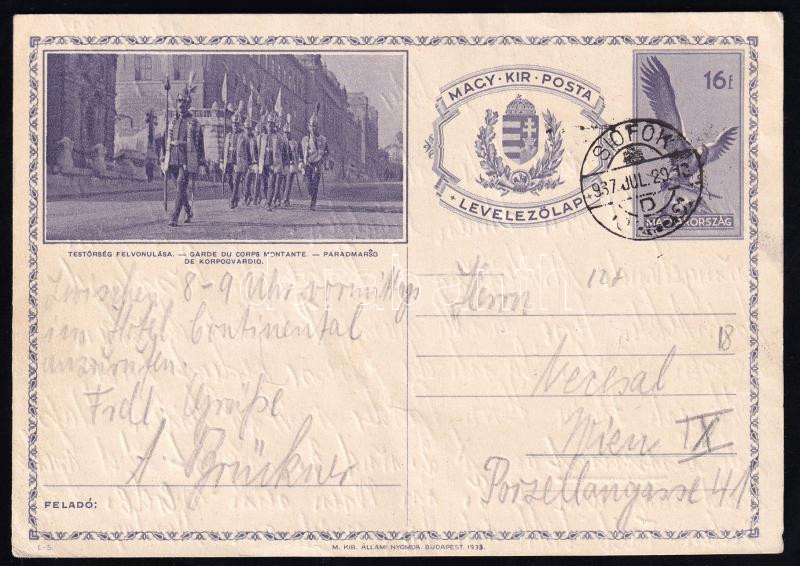 MAGY·KIR·POSTA
LEVELEZŐLAP
16f
MAGYARORSZÁG
SIÓFOK
937.JUL.29.
D
TESTŐRSÉG FELVONULÁSA. — GARDE DU CORPS MONTANTE. — PARADMARŜO
DE KORPOGVARDIO.
Zwischen 8-9 Uhr vormittags
im Hotel Continental
anzurufen.
Frdl. Grüße
A. Brückner
FELADÓ:
Herrn
18
Wien IX
Porzellangasse 41
E-5.
M. KIR. ÁLLAMI NYOMDA. BUDAPEST. 1933.
darabanth